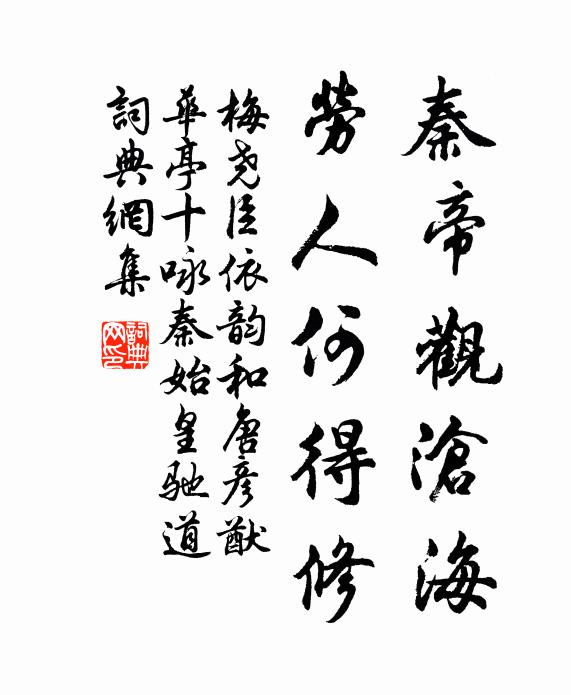 秦帝觀滄海
勞人何得修
梅堯臣依韵和唐彦猷
華亭十咏秦始皇馳道
詞典網集
詞典网印